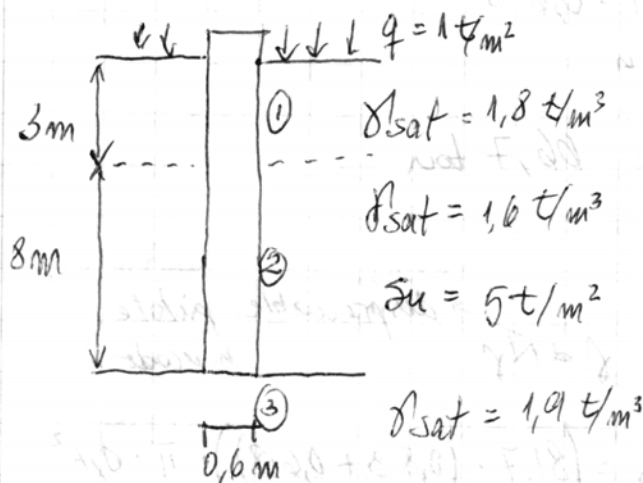 q = 1 t/m²
3m
①
γsat = 1,8 t/m³
γsat = 1,6 t/m³
8m
②
Su = 5 t/m²
③
γsat = 1,9 t/m³
0,6 m